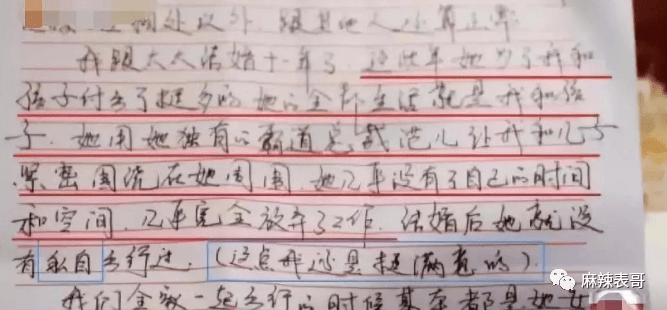 处以外，跟其他人还算正常
我跟太太结婚十一年了，这些年她为了我和
孩子付出了挺多的，她的全部生活就是我和孩
子，她用她独有的霸道总裁范儿让我和儿子
紧密围绕在她周围，她几乎没有了自己的时间
和空间，几乎完全放弃了工作，结婚后她就没
有私自出行过，（这点我还是挺满意的）。
我们全家一起出行的时候基本都是她
麻辣表哥